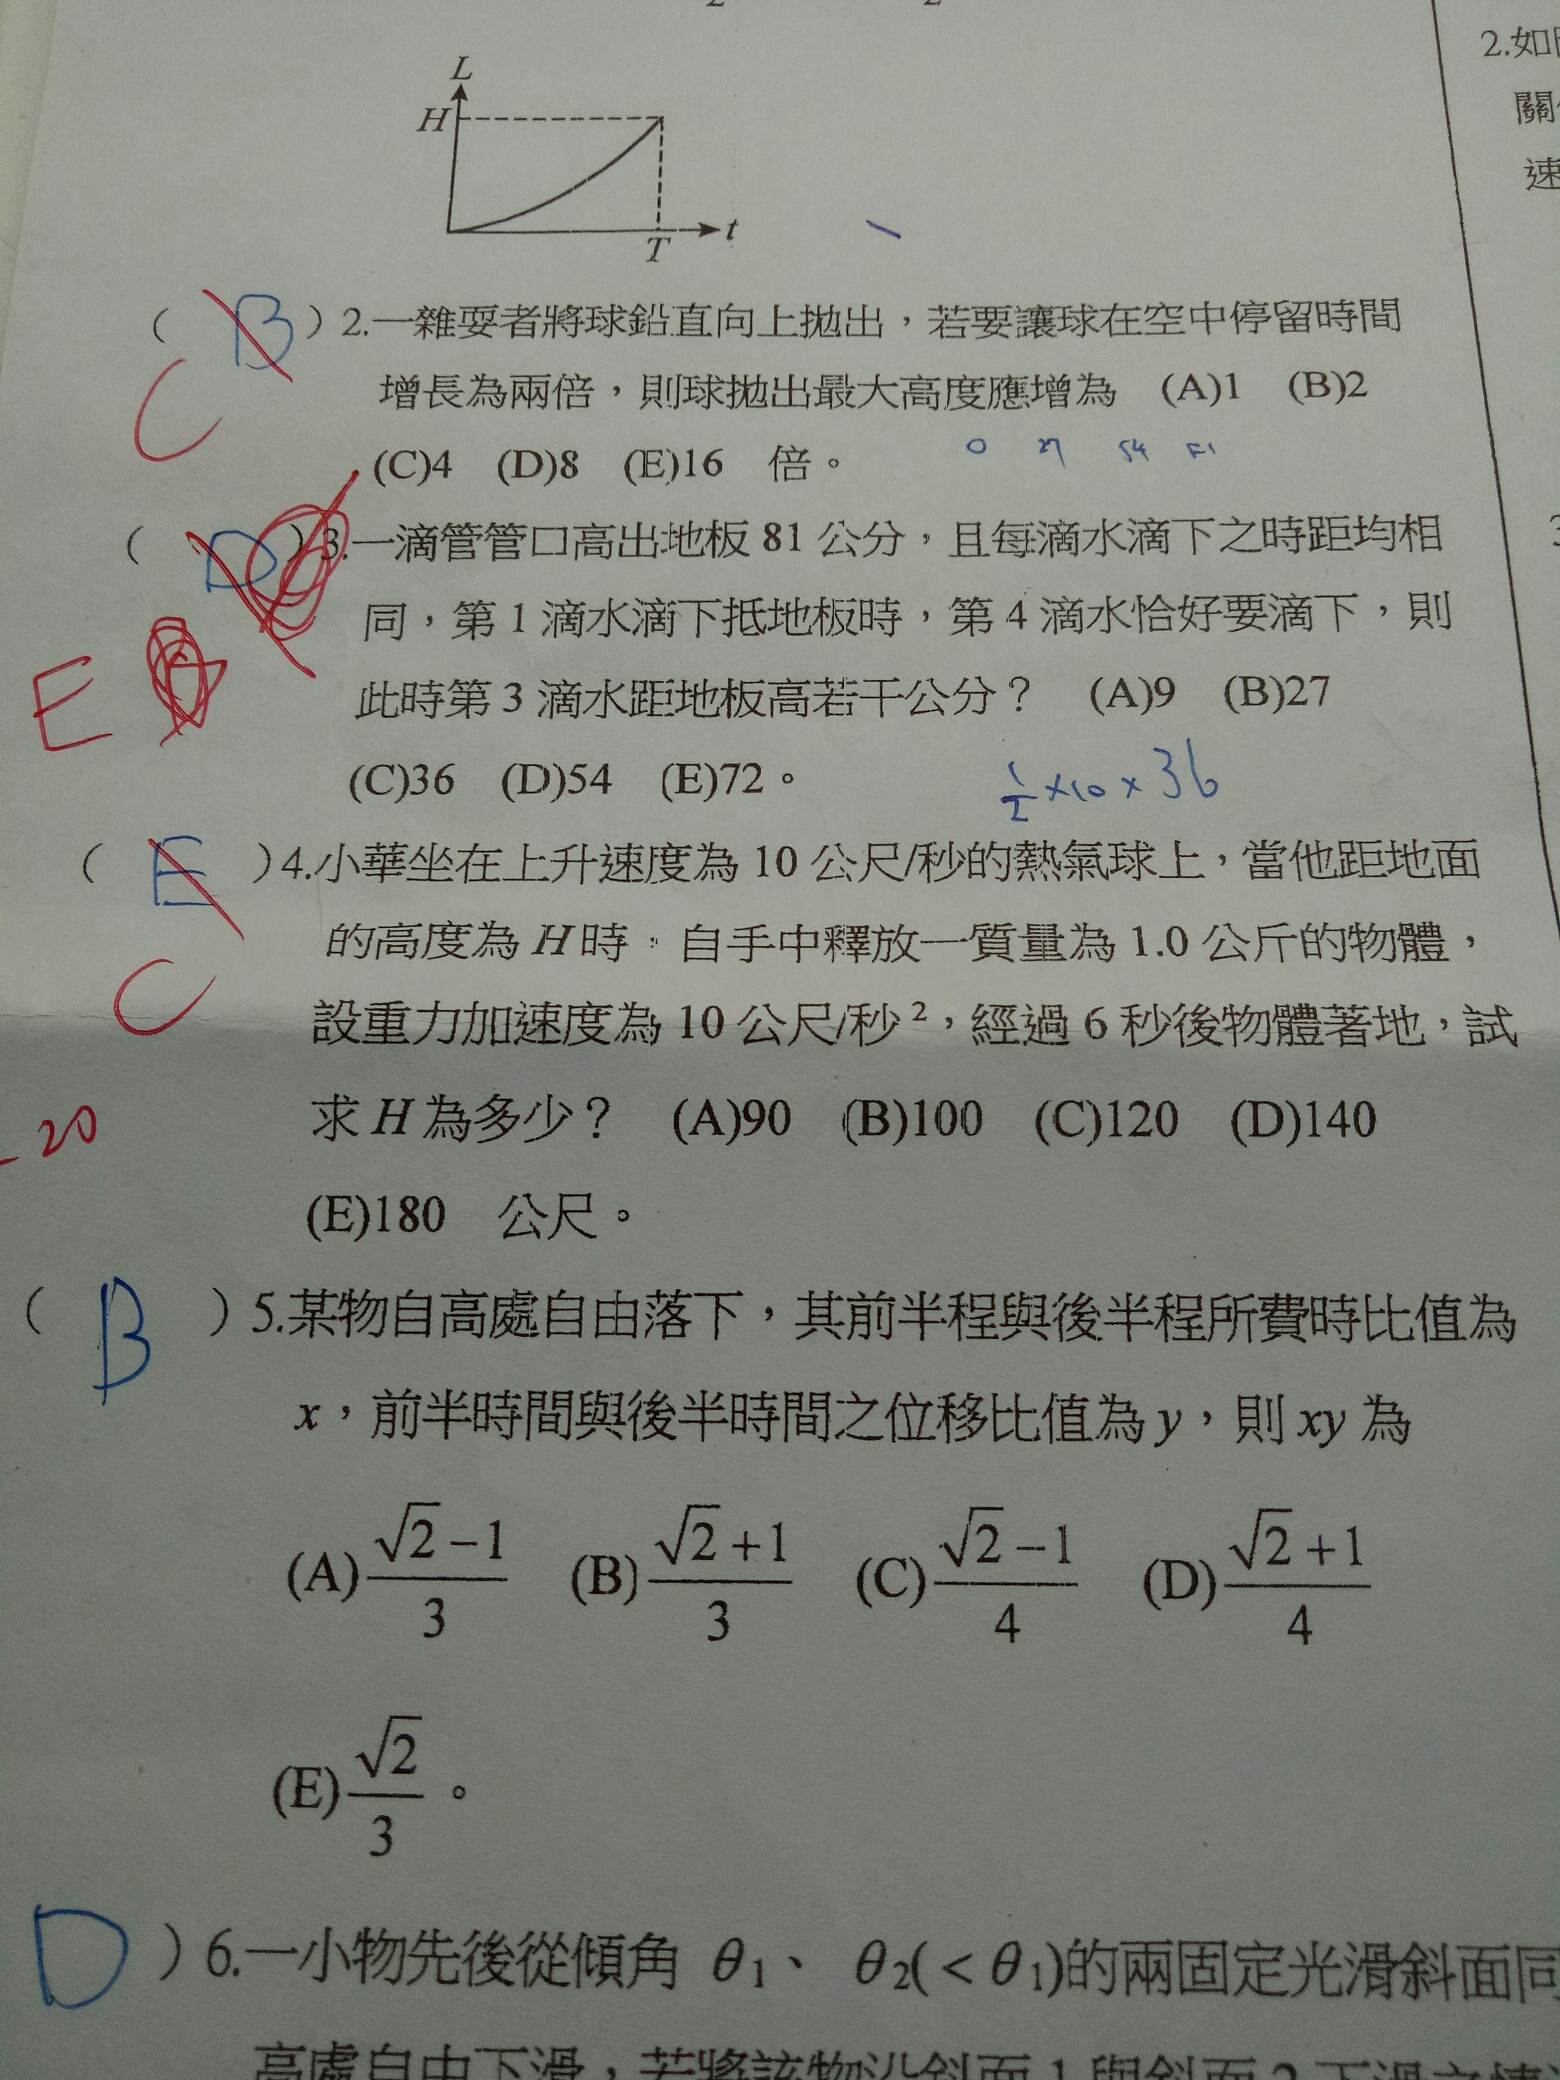 L
H
T
t
2.如
關
速
( B )2.一雜耍者將球鉛直向上拋出，若要讓球在空中停留時間
C
增長為兩倍，則球拋出最大高度應增為 (A)1 (B)2
(C)4 (D)8 (E)16 倍。
0 27 54 81
( D )3.一滴管管口高出地板 81 公分，且每滴水滴下之時距均相
同，第 1 滴水滴下抵地板時，第 4 滴水恰好要滴下，則
E
此時第 3 滴水距地板高若干公分？ (A)9 (B)27
(C)36 (D)54 (E)72。
1/2 ×10 × 36
( E )4.小華坐在上升速度為 10 公尺/秒的熱氣球上，當他距地面
的高度為 H 時，自手中釋放一質量為 1.0 公斤的物體，
C
設重力加速度為 10 公尺/秒²，經過 6 秒後物體著地，試
求 H 為多少？ (A)90 (B)100 (C)120 (D)140
-20
(E)180 公尺。
( B )5.某物自高處自由落下，其前半程與後半程所費時比值為
x，前半時間與後半時間之位移比值為 y，則 xy 為
(A) (√2−1)/3 (B) (√2+1)/3 (C) (√2−1)/4 (D) (√2+1)/4
(E) √2/3 。
D )6.一小物先後從傾角 θ₁、 θ₂(<θ₁)的兩固定光滑斜面同
高處自由下滑，若將該物沿斜面 1 與斜面 2 下滑之